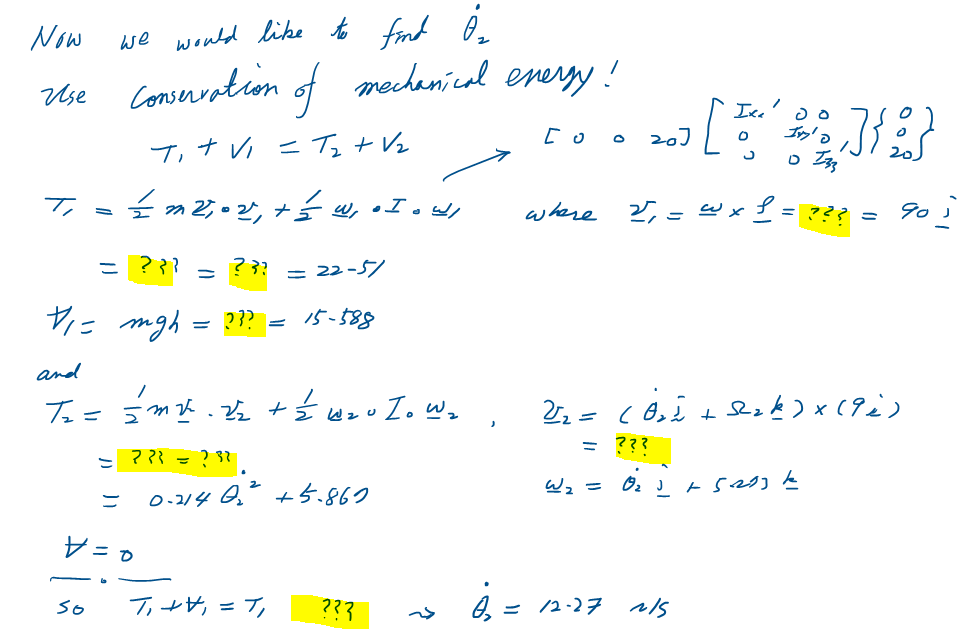 Now we would like to find θ̇₂
Use conservation of mechanical energy!
T₁ + V₁ = T₂ + V₂ → [0 0 20] [Ixx' 0 0 0 Iyy' 0 0 0 Izz'] {0 0 20}
T₁ = 1/2 m v₁ • v₁ + 1/2 ω₁ • I • ω₁ where v₁ = ω × ρ = ??? = 90 j
= ??? = ??? = 22.51
V₁ = mgh = ??? = 15.588
and
T₂ = 1/2 m v₂ . v₂ + 1/2 ω₂ • I • ω₂ , v₂ = (θ̇₂ j + Ω₂ k) × (9 i)
= ??? = ??? = ???
= 0.214 θ̇₂² + 5.867 ω₂ = θ̇₂ j + 5.203 k
V = 0
so T₁ + V₁ = T₁ ??? ⇝ θ̇₂ = 12.27 r/s